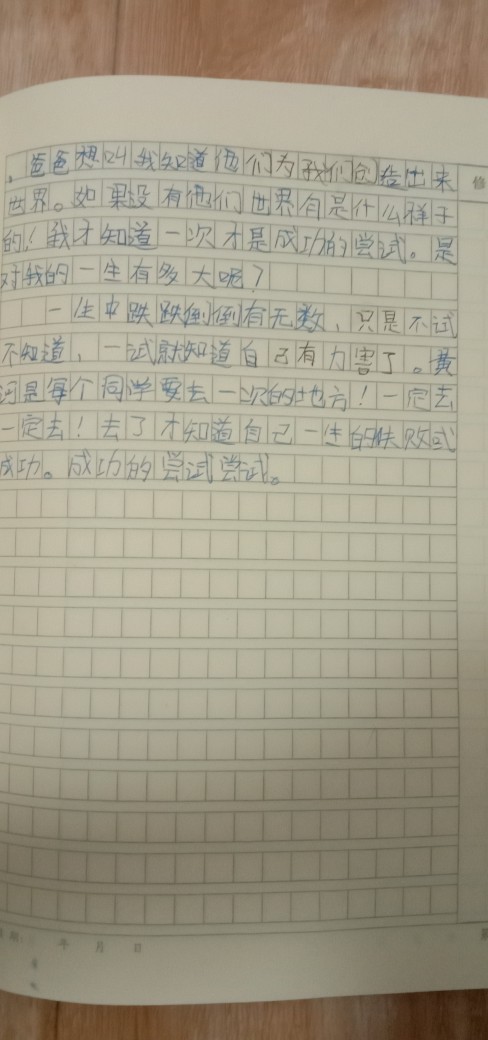 、爸爸想叫我知道他们为我们创造出来
修
世界。如果没有他们世界有是什么样子
的！我才知道一次才是成功的尝试。是
对我的一生有多大呢？
一生中跌跌倒倒有无数、只是不试
不知道、一试就知道自己有力害了。黄
河是每个同学要去一次的地方！一定去
一定去！去了才知道自己一生的失败或
成功。成功的尝试尝试。
年 月 日